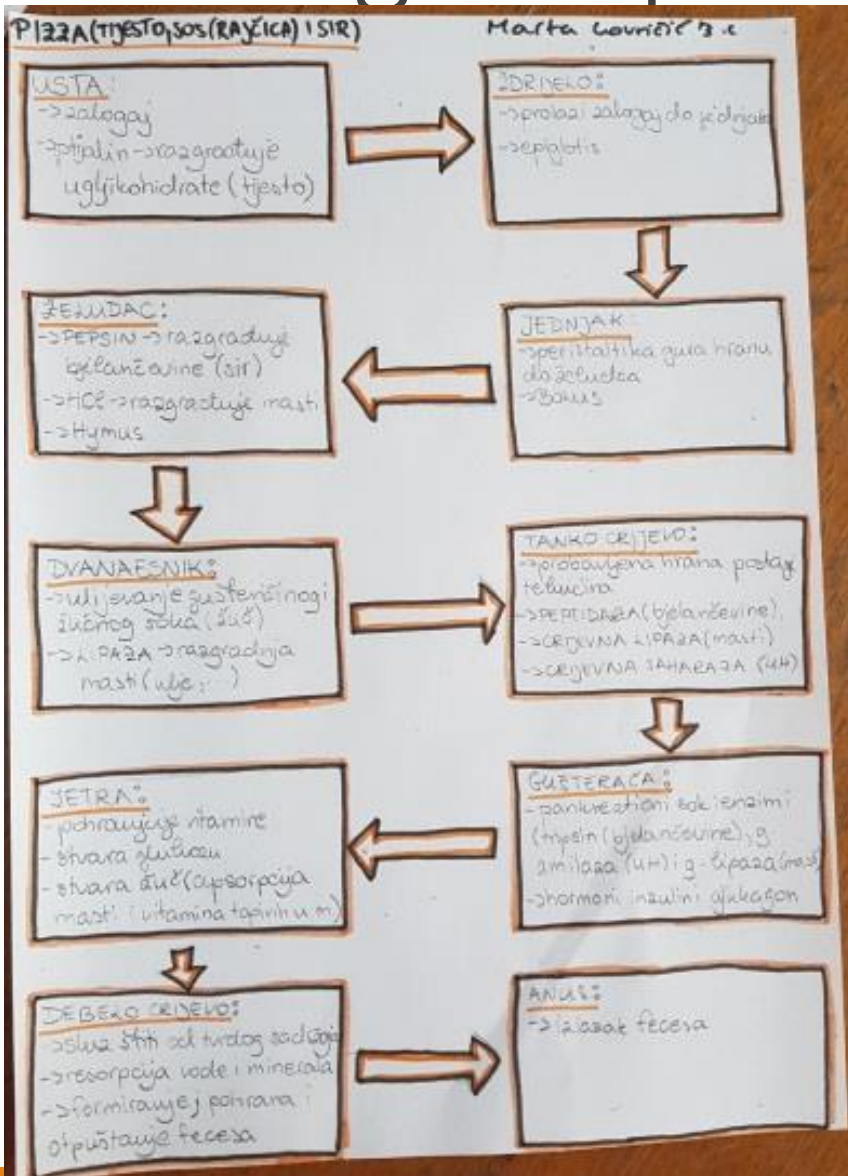 PIZZA (TIJESTO, SOS (RAJČICA) I SIR)
Marta Lovričić 3.c
USTA:
-> zalogaj
-> ptijalin -> razgrađuje
ugljikohidrate (tijesto)
ŽDRIJELO:
-> prolazi zalogaj do jednjaka
-> epiglotis
JEDNJAK:
-> peristaltika gura hranu
do želudca
-> Bolus
ŽELUDAC:
-> PEPSIN -> razgrađuje
bjelančevine (sir)
-> HCl -> razgrađuje masti
-> Hymus
DVANAESNIK:
-> ulijevanje gušteričinog i
žučnog soka (žuč)
-> LIPAZA -> razgradnja
masti (ulje, ...)
TANKO CRIJEVO:
-> probavljena hrana postaje
tekućina
-> PEPTIDAZA (bjelančevine),
-> CRIJEVNA LIPAZA (masti)
-> CRIJEVNA SAHARAZA (UH)
GUŠTERAČA:
- pankreationi sok i enzimi
(tripsin (bjelančevine), g
amilaza (UH) i g-lipaza (masti)
-> hormoni inzulin i glukagon
JETRA:
- pohranjuje vitamine
- stvara glukozu
- stvara žuč (apsorpcija
masti i vitamina topivih u m)
DEBELO CRIJEVO:
-> sluz štiti od tvrdog sadržaja
-> resorpcija vode i minerala
-> formiranje, pohrana i
otpuštanje fecesa
ANUS:
-> izlazak fecesa